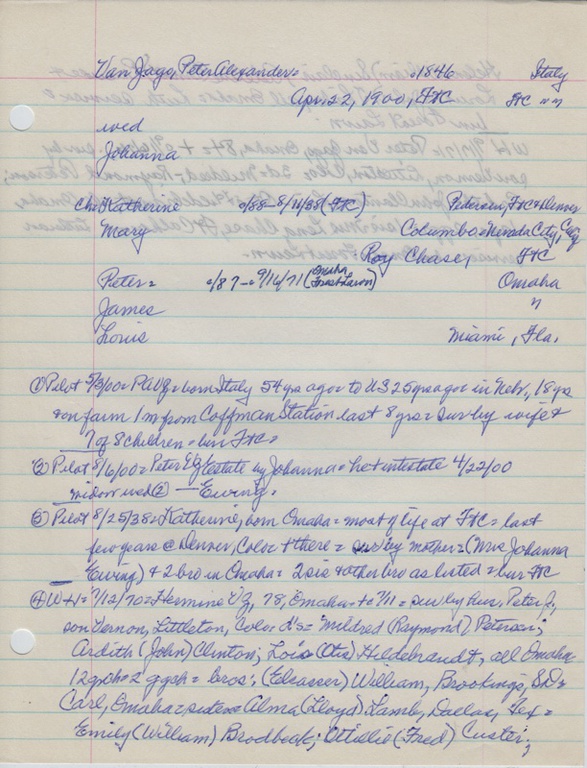 Van Jago, Peter Alexander = c1846 Italy
Apr. 22, 1900, FtC FtC " "
wed
Johanna
Ch: Katherine c/88 - 8/11/38 (FtC) Pedersen, FtC & Denver
Mary Columbo = Nevada City, Calif
Roy Chase, FtC
Peter = c/87 - c9/16/71 (Omaha Forest Lawn) Omaha
James "
Louis Miami, Fla.
① Pilot 5/3/00 = PAVJ = born Italy 54 yrs ago = to US 25 yrs ago = in Nebr. 18 yrs
& on farm 1 m from Coffman Station last 8 yrs = sur by wife &
7 of 8 children = bur FtC =
② Pilot 8/6/00 = Peter estate by Johanna = he intestate 4/22/00
widow wed ② — Ewing =
③ Pilot 8/25/38 = Katherine, born Omaha = most of life at FtC = last
few years @ Denver, Colo & there = sur by mother = (Mrs Johanna
Ewing) & 2 bro in Omaha = 2 sis & other bro as listed = bur FtC
④ W-H = 7/12/70 = Hermine VJ, 78, Omaha = to 7/11 = sur by hus. Peter J.,
son Vernon, Littleton, Colo = d's = Mildred (Raymond) Petersen;
Ardith (John) Clinton; Lois (Otis) Hildebrandt, all Omaha
12 gch = 2 ggch = bros: (Eleasser) William, Brookings, SD =
Carl, Omaha = sisters = Alma (Lloyd) Lamb, Dallas, Tex =
Emily (William) Brodbeck; Ottillie (Fred) Custer;